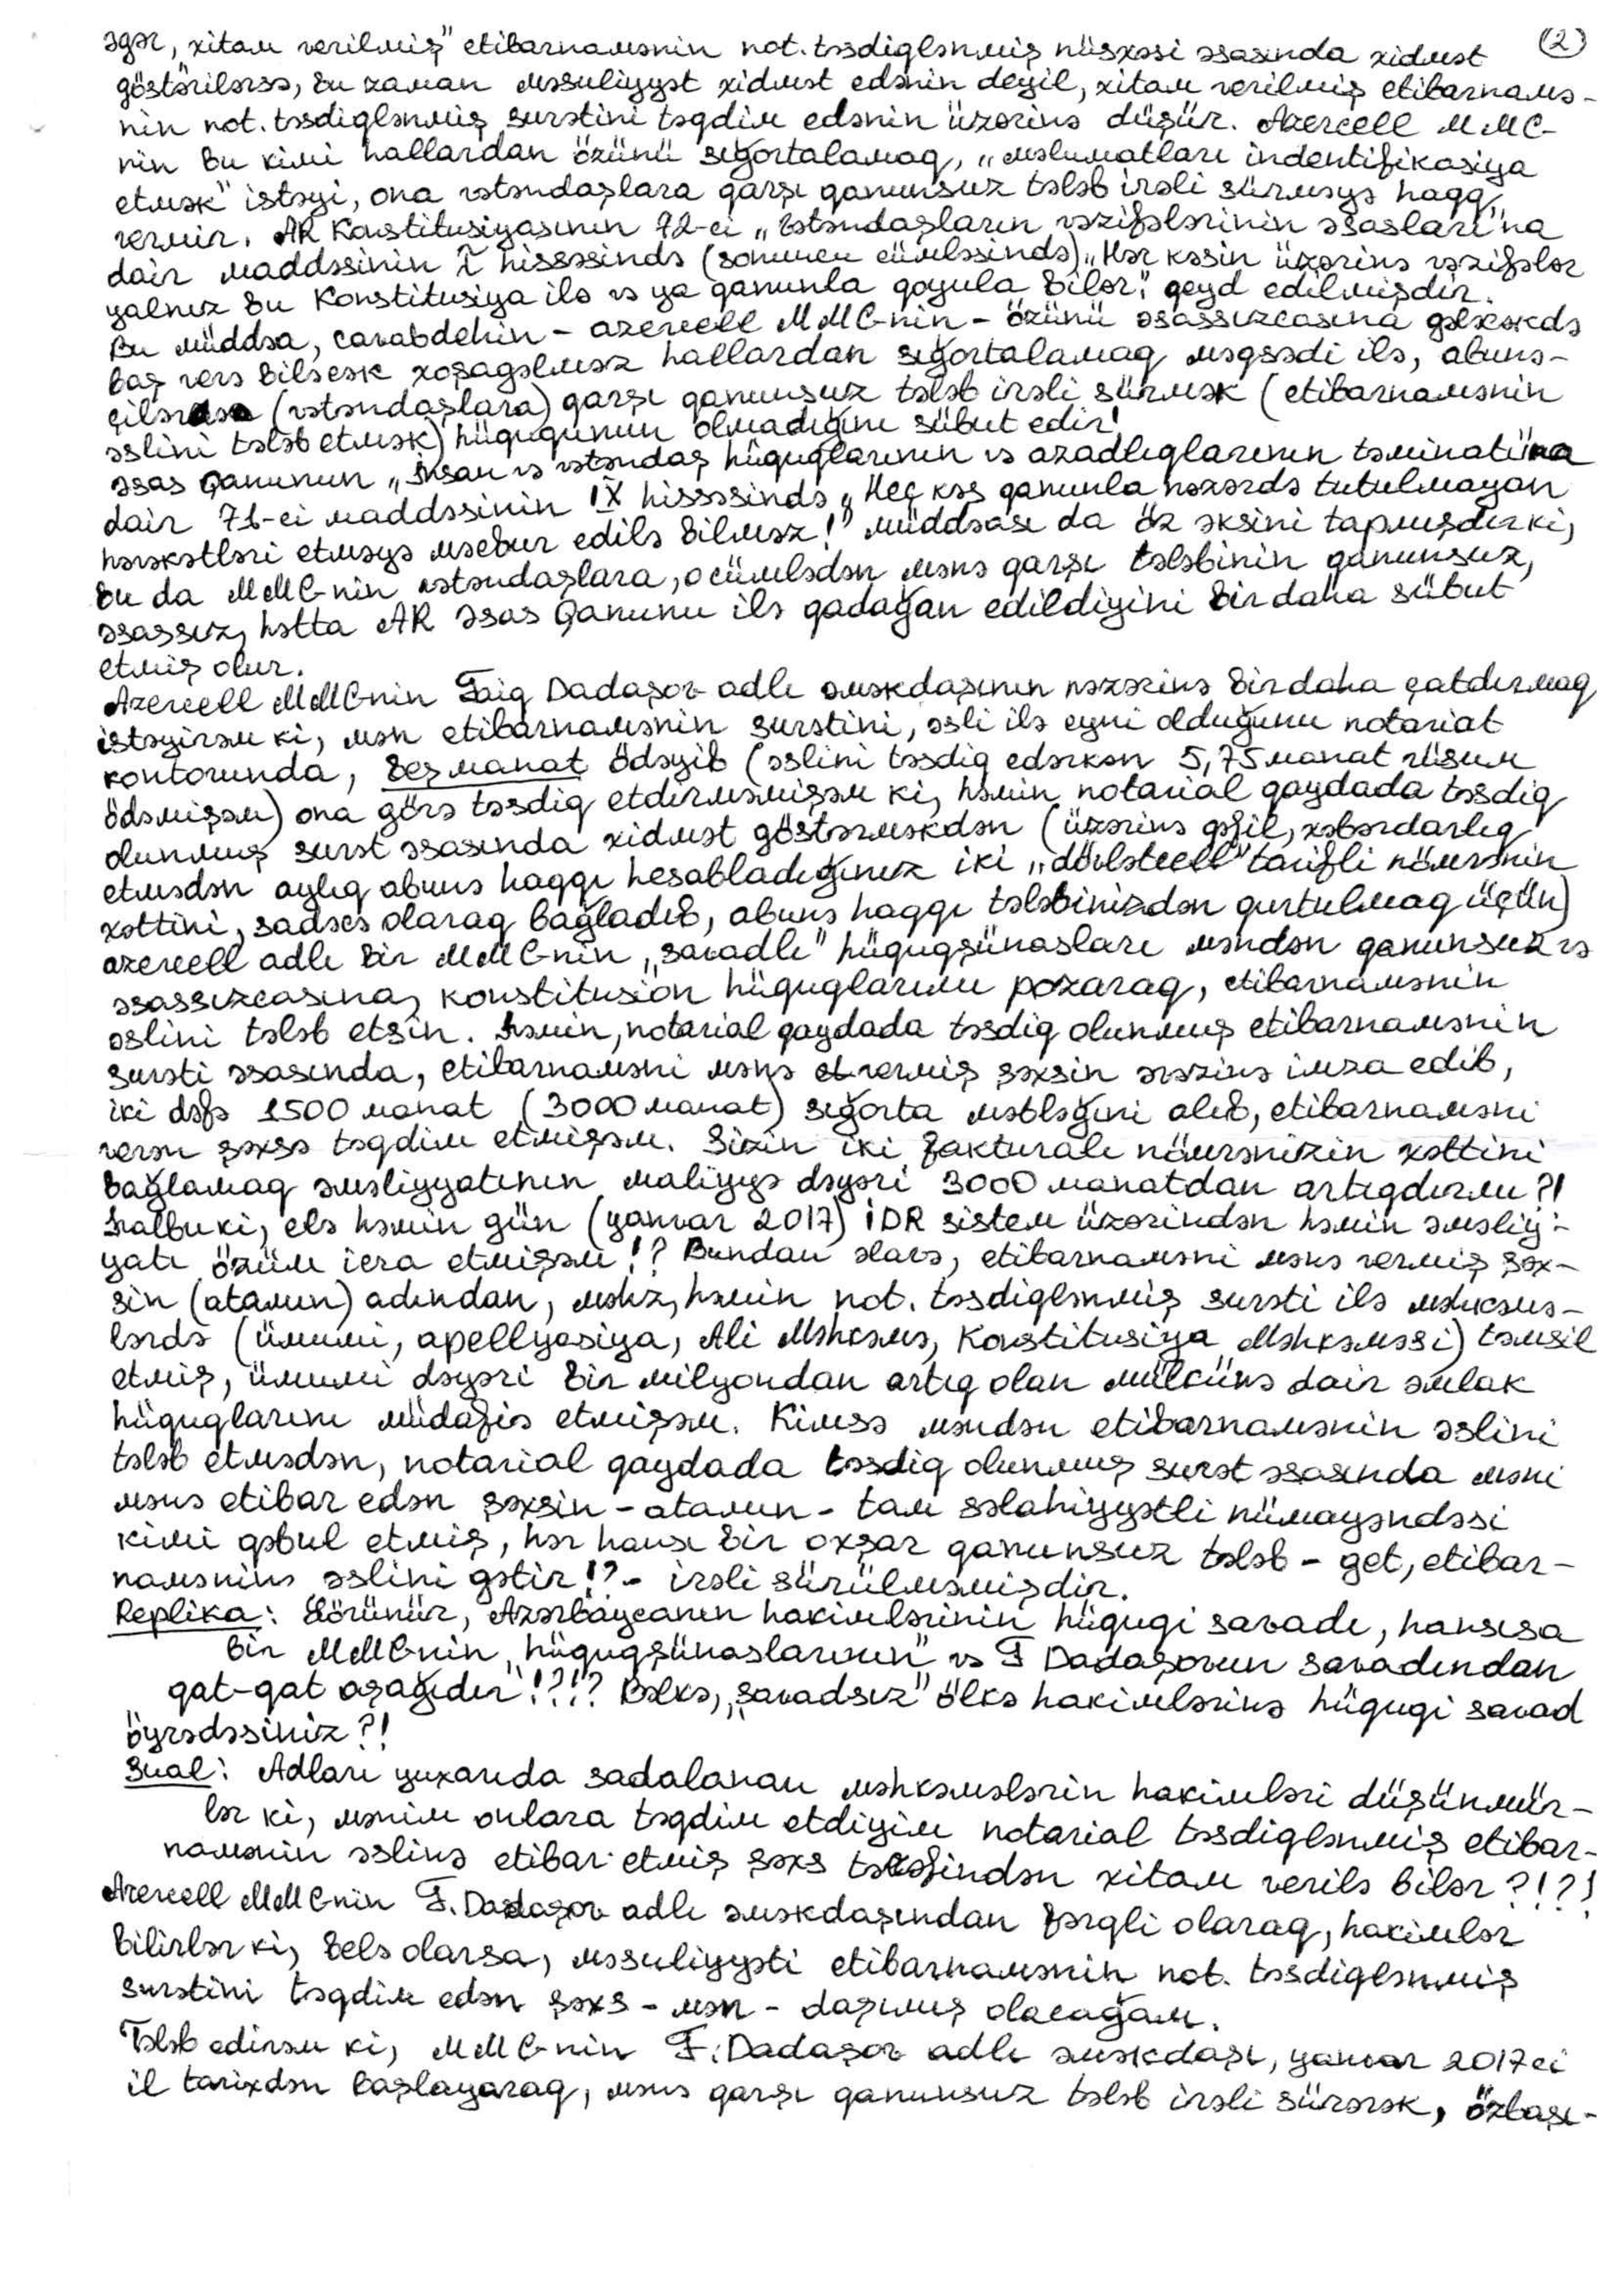 əgər, „xitam verilmiş" etibarnamənin not. təsdiqlənmiş nüsxəsi əsasında xidmət (2)
göstərilərsə, bu zaman məsuliyyət xidmət edənin deyil, xitam verilmiş etibarnamə-
nin not. təsdiqlənmiş surətini təqdim edənin üzərinə düşür. Azercell MMC-
nin bu kimi hallardan özünü sığortalamaq, „məlumatları indentifikasiya
etmək" istəyi, ona vətəndaşlara qarşı qanunsuz tələb irəli sürməyə haqq
vermir. AR Konstitusiyasının 72-ci „Vətəndaşların vəzifələrinin əsasları"na
dair maddəsinin I hissəsində (sonuncu cümləsində) „Hər kəsin üzərinə vəzifələr
yalnız bu Konstitusiya ilə və ya qanunla qoyula bilər", qeyd edilmişdir.
Bu müddəa, cavabdehin - azercell MMC-nin - özünü əsassızcasına gələcəkdə
baş verə biləcək xoşagəlməz hallardan sığortalamaq məqsədi ilə, abunə-
çilərə (vətəndaşlara) qarşı qanunsuz tələb irəli sürmək (etibarnamənin
əslini tələb etmək) hüququnun olmadığını sübut edir!
Əsas Qanunun „İnsan və vətəndaş hüquqlarının və azadlıqlarının təminatı"na
dair 71-ci maddəsinin IX hissəsində „Heç kəs qanunla nəzərdə tutulmayan
hərəkətləri etməyə məcbur edilə bilməz!" müddəası da öz əksini tapmışdır ki,
bu da MMC-nin vətəndaşlara, o cümlədən mənə qarşı tələbinin qanunsuz,
əsassız, hətta AR Əsas Qanunu ilə qadağan edildiyini bir daha sübut
etmiş olur.
Azercell MMC-nin Faiq Dadaşov adlı əməkdaşının nəzərinə bir daha çatdırmaq
istəyirəm ki, mən etibarnamənin surətini, əsli ilə eyni olduğunu notariat
kontorunda, beş manat ödəyib (əslini təsdiq edərkən 5,75 manat rüsum
ödəmişəm) ona görə təsdiq etdirməmişəm ki, həmin notarial qaydada təsdiq
olunmuş surət əsasında xidmət göstərməkdən (üzərinə qəfil, xəbərdarlıq
etmədən aylıq abunə haqqı hesabladığınız iki „dövlətcell" tarifli nömrənin
xəttini, sadəcə olaraq bağladıb, abunə haqqı tələbinizdən qurtulmaq üçün)
azercell adlı bir MMC-nin „savadlı" hüquqşünasları məndən qanunsuz və
əsassızcasına, konstitusion hüquqlarımı pozaraq, etibarnamənin
əslini tələb etsin. Həmin, notarial qaydada təsdiq olunmuş etibarnamənin
surəti əsasında, etibarnaməni mənə vermiş şəxsin əvəzinə imza edib,
iki dəfə 1500 manat (3000 manat) sığorta məbləğini alıb, etibarnaməni
verən şəxsə təqdim etmişəm. Sizin iki fakturalı nömrənizin xəttini
bağlamaq əməliyyatının maliyyə dəyəri 3000 manatdan artıqdırmı?!
Halbuki, elə həmin gün (yanvar 2017) İDR sistem üzərindən həmin əməliy-
yatı özüm icra etmişəm!? Bundan əlavə, etibarnaməni mənə vermiş şəx-
sin (atamın) adından, məhz, həmin not. təsdiqlənmiş surəti ilə məhkəmə-
lərdə (ümumi, apellyasiya, Ali Məhkəmə, Konstitusiya Məhkəməsi) təmsil
etmiş, ümumi dəyəri bir milyondan artıq olan mülkünə dair əmlak
hüquqlarını müdafiə etmişəm. Kimsə məndən etibarnamənin əslini
tələb etmədən, notarial qaydada təsdiq olunmuş surət əsasında məni
mənə etibar edən şəxsin - atamın - tam səlahiyyətli nümayəndəsi
kimi qəbul etmiş, hər hansı bir oxşar qanunsuz tələb - get, etibar-
namənin əslini gətir!? - irəli sürülməmişdir.
Replika: Görünür, Azərbaycanın hakimlərinin hüquqi savadı, hansısa
bir MMC-nin „hüquqşünaslarının" və F Dadaşovun savadından
qat-qat aşağıdır!?!? Bəlkə, „savadsız" ölkə hakimlərinə hüquqi savad
öyrədəsiniz?!
Sual: Adları yuxarıda sadalanan məhkəmələrin hakimləri düşünmür-
lər ki, mənim onlara təqdim etdiyim notarial təsdiqlənmiş etibar-
namənin əslinə etibar etmiş şəxs tərəfindən xitam verilə bilər?!?!
Azercell MMC-nin F. Dadaşov adlı əməkdaşından fərqli olaraq, hakimlər
bilirlər ki, belə olarsa, məsuliyyəti etibarnamənin not. təsdiqlənmiş
surətini təqdim edən şəxs - mən - daşımış olacağam.
Tələb edirəm ki, MMC-nin F. Dadaşov adlı əməkdaşı, yanvar 2017ci
il tarixdən başlayaraq, mənə qarşı qanunsuz tələb irəli sürərək, özbaşı-